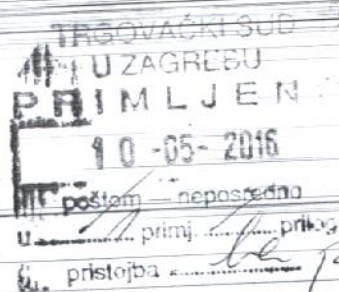 TRGOVAČKI SUD
U ZAGREBU
PRIMLJEN
10 -05- 2016
poštom — neposredno
u ........ primj. ........ prilog
pristojba ........